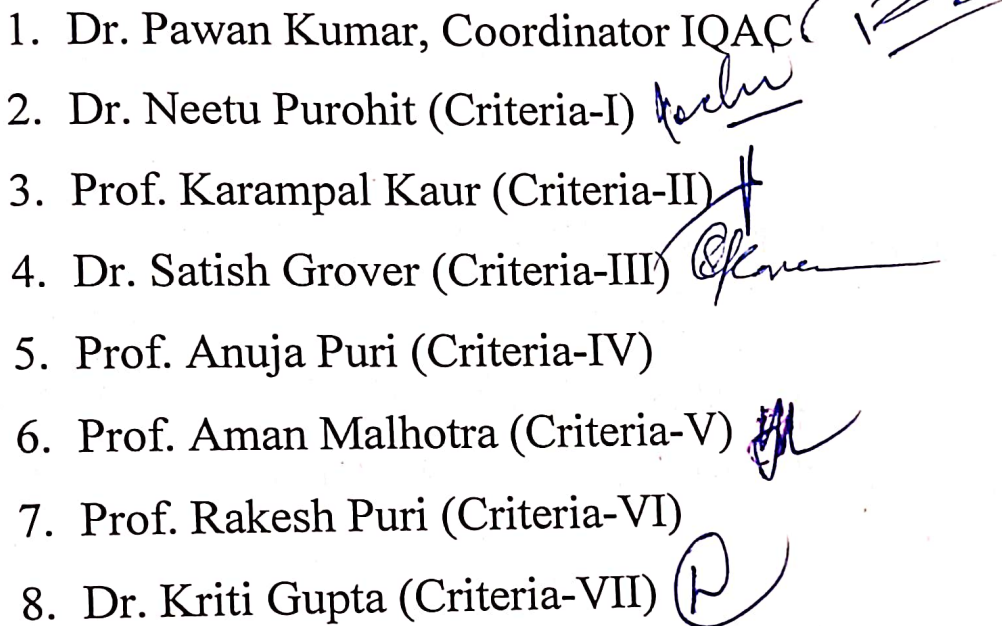 1. Dr. Pawan Kumar, Coordinator IQAC
2. Dr. Neetu Purohit (Criteria-I)
3. Prof. Karampal Kaur (Criteria-II)
4. Dr. Satish Grover (Criteria-III)
5. Prof. Anuja Puri (Criteria-IV)
6. Prof. Aman Malhotra (Criteria-V)
7. Prof. Rakesh Puri (Criteria-VI)
8. Dr. Kriti Gupta (Criteria-VII)